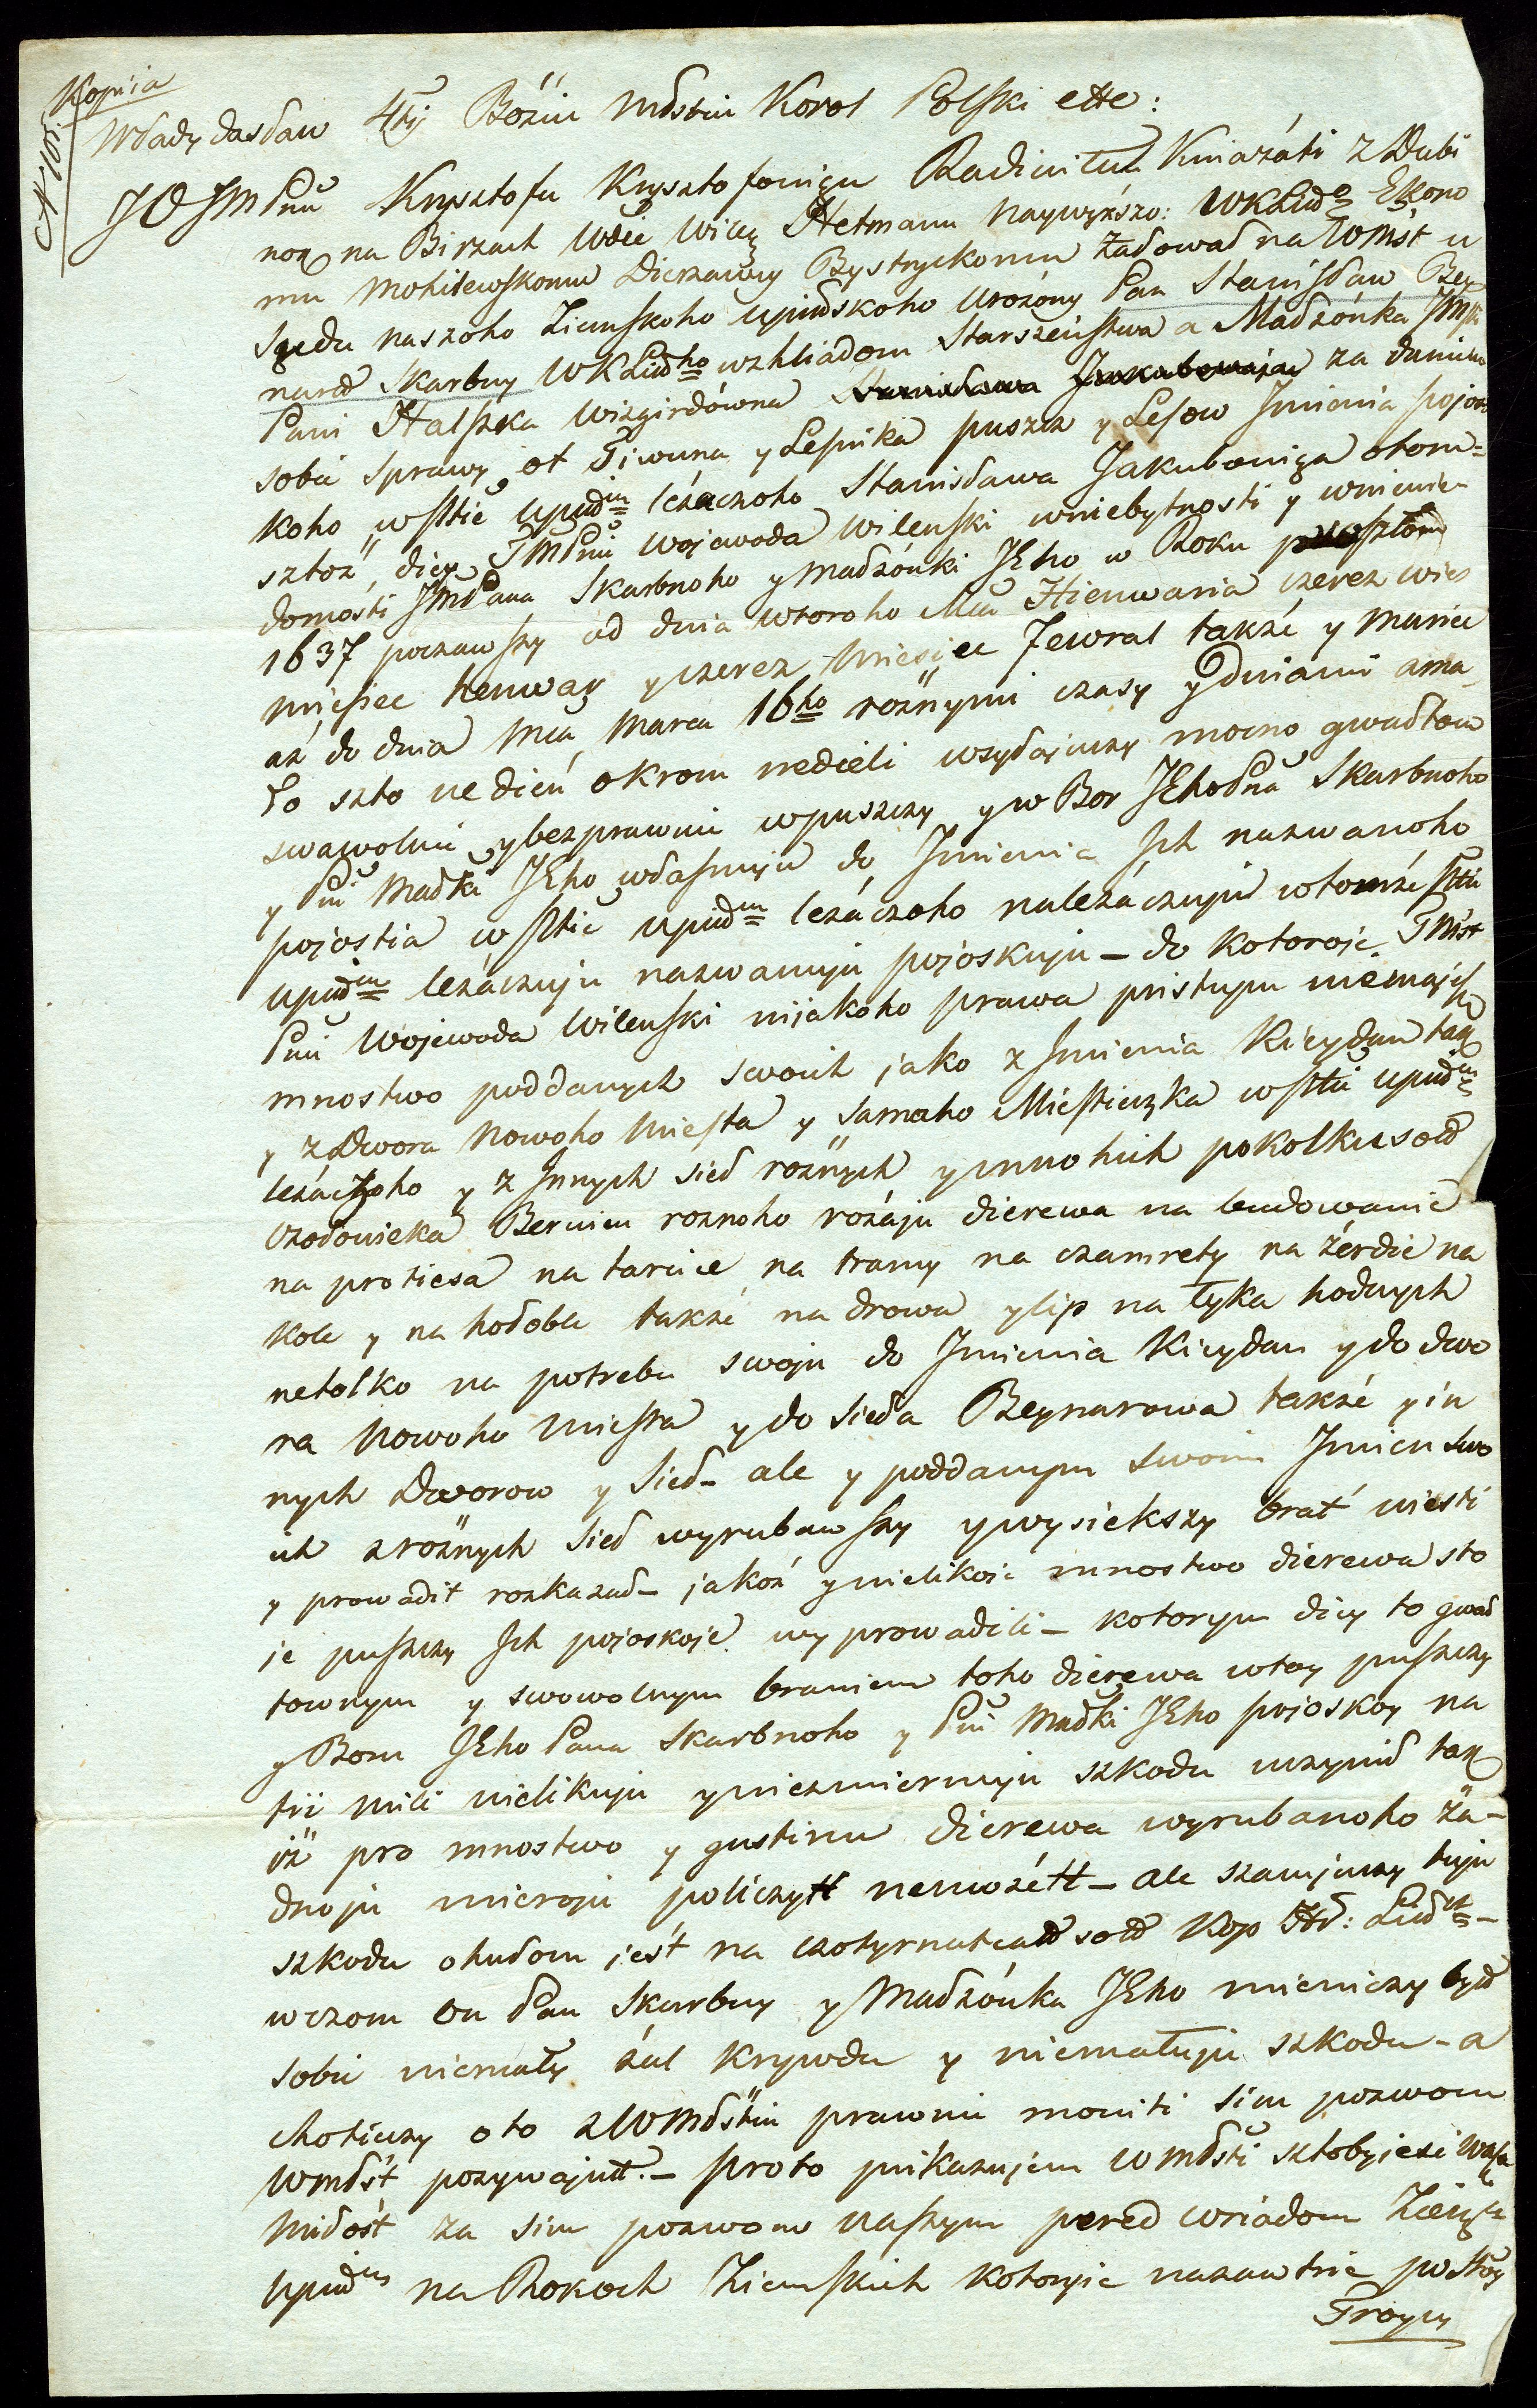 Kopia
N 101.
Władysław 4ty Bożiu młstiu Korol Polski ette:
JO JMPnu Krysztofu Krysztofowiczu Radiwiłu Kniażáti z Dubi
nok na Birzach Wdie Wilen Hetmanu Naywyższo: WKLitdo Ekono
mu Mohilewskomu Dierżawcy Bystryckomu Żałował na Wmśt u
Sądu naszoho Ziemskoho Upitskoho Urożony Pan Stanisław Bey
nard Skarbny WKLitdho wzhliadom Starszeństwa a Małżónka JMP
Pani Halszka Wizgirdówna za daniem
sobi sprawy ot Tiwuna y Leśnika puszcz y Lesow Jmienia pojos
koho w Pttie Upitdm leżaczoho Stanisława Jakubowicza o tom
sztoż, diey JMPnu Wojewoda Wilenski w niebytnosti y w niewie
domosti JMPana Skarbnoho y małżónki JEho w Roku proszłom
1637 poczawszy od dnia wtoroho Mca Hienwaria czerez wies
miesiec henwar y czerez miesiec Fewral także y Mariec
aż do dnia mca Marca 16ho rożnymi czasy y dniami ama
ło szto ne dień okrom nedieli wsyłajuczy mocno gwałtow
swawolni y bezprawni w puszczy y w Bor JEho Pna Skarbnoho
y Pni Małki JEho własnuju do Jmienia Jch nazwanoho
pojostia w Pttie Upitdm leżáczoho należáczuju w tomże Pttie
Upitdm leżáczuju nazwanuju pojoskuju - do kotoroie JMst
Pnu Wojewoda Wilenski nijakoho prawa pristupu nemajuczy
mnostwo poddanych swoich jako z Jmienia Kieydan tak
y z Dwora Nowoho Miesta y samoho Miesteczka w Pttie Upitdm
leżáczoho y z Jnnych sieł rożnych y mnohich po kolkusoł
czołowieka Berwien roznoho rożaju dierewa na budowanie
na protiesa na tarcice na tramy na czamrety na żerdie na
kole y na hołoble także na drowa y lip na łyka hodnych
netolko na potrebu swoju do Jmienia Kieydan y do dwo
ra Nowoho Miesta y do sieła Beynarowa także y in
nych Dworow y Sieł - ale y poddanym swoim Jmien swo
ich z rożnych sieł wyrubawszy y wysiekszy brat' wiesti
y prowadit rozkazał - jakoż y wielikoie mnostwo dierewa s to
je puszczy Jch pojoskoje wyprowadili - kotorym diey to gwał
townym y swowolnym braniem toho dierewa w toy puszczy
y Boru JEho Pana Skarbnoho y Pni Małki JEho pojoskoy na
tri mili wielikuju y niezmiernuju szkodu uczynił tak
iż pro mnostwo y gustinu dierewa wyrubanoho ża-
dnoju mieroju policzytt nemożett - ale szacujuczy tuju
szkodu ohułom jest na czotyrnatcat soł Kop Hr: Litdch -
w czom on Pan Skarbny y Małżónka JEho mieniczy być
sobi niemały żal krywdu y niemałuju szkodu - a
chotiaczy o to z WMłstiu prawni mowiti sim pozwom
Wmłśt pozywajutt. - proto prikazujem Wmłsti sztobyiesi wasza
Miłośt za sim pozwom naszym pered wriadom Ziems
Upitdm na Rokoch Ziemskich kotoryie nazawtrie po Stoy
Troycy